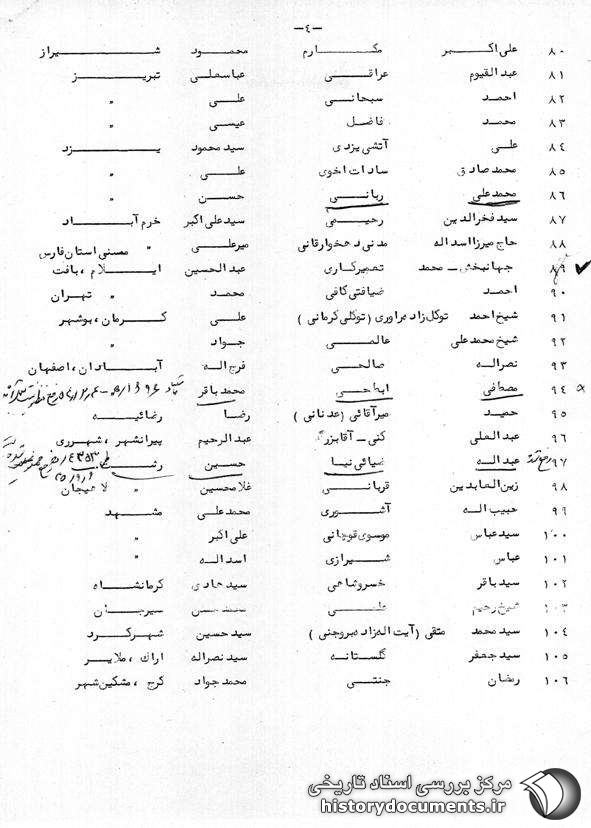 -٤-
٨٠ علی اکبر مکارم محمود شیراز
٨١ عبدالقیوم عراقی عباسعلی تبریز
٨٢ احمد سبحانی علی "
٨٣ محمد فاضل عیسی "
٨٤ علی آتشی یزدی سید محمود یزد
٨٥ محمد صادق سادات اخوی علی "
٨٦ محمد علی ربانی حسن "
٨٧ سید فخرالدین رحیمی سید علی اکبر خرم آباد
٨٨ حاج میرزا اسداله مدنی دهخوارقانی میرعلی " ممسنی استان فارس
٨٩ جهانبخش - محمد تعمیرکاری عبدالحسین ایلام، بافت
٩٠ احمد ضیافتی کافی محمد " تهران
٩١ شیخ احمد توکل زاده راوری (توکلی کرمانی) علی کرمان، بوشهر
٩٢ شیخ محمد علی عالمی جواد "
٩٣ نصراله صالحی فرج اله آبادان، اصفهان
٩٤ مصطفی ابطحی محمد باقر
٩٥ حمید میرآقائی (عدنانی) رضا رضائیه
٩٦ عبدالعلی کنی - آقابزرگ عبدالرحیم پیرانشهر، شهرری
٩٧ عبداله ضیائی نیا حسین رشت
٩٨ زین العابدین قربانی غلامحسین " لاهیجان
٩٩ حبیب اله آشوری محمد علی مشهد
١٠٠ سید عباس موسوی قوچانی علی اکبر "
١٠١ عباس شیرازی اسداله "
١٠٢ سید باقر خسروشاهی سید هادی کرمانشاه
١٠٣ شیخ رحیم سیرجان
١٠٤ سید محمد متقی (آیت اله زاده بروجنی) سید حسین شهرکرد
١٠٥ سید جعفر گلستانه سید نصراله اراک، ملایر
١٠٦ رمضان جنتی محمد جواد کرج، مشکین شهر
مرکز بررسی اسناد تاریخی
historydocuments.ir